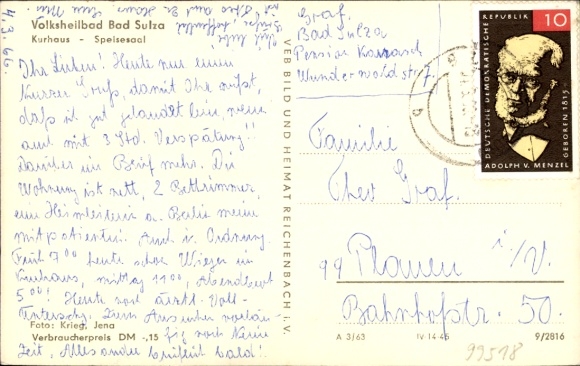 4.3.66.
Volksheilbad Bad Sulza
Kurhaus - Speisesaal
Ihr Lieben! Heute nur einen
kurzen Gruß, damit Ihr wißt,
daß ich gut gelandet bin, wenn
auch mit 3 Std. Verspätung!!
Darüber im Brief mehr. Die
Wohnung ist nett, 2 Bettzimmer,
eine Heimleiterin a. Berlin meine
Mitpatientin. Auch i. Ordnung.
Früh 7 00 heute schon Wiegen im
Kurhaus, mittag 11 00, Abendbrot
5 00! Heute noch ärztl.
Zum Ausruhen
noch keine
Zeit. Alles andere brieflich bald!
Foto: Krieg, Jena
Verbraucherpreis DM -,15
VEB BILD UND HEIMAT REICHENBACH i. V.
Graf.
Bad Sulza
Pension
Wunderwaldstr.
Familie
Graf.
99 Plauen i/V.
Bahnhofstr. 50.
A 3/63
IV-14-45
9/2816
99518
DEUTSCHE DEMOKRATISCHE REPUBLIK
10
GEBOREN 1815
ADOLPH V. MENZEL